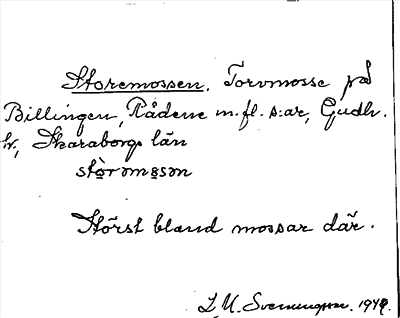 Storemossen. Torvmosse på
Billingen, Rådene m.fl. s:ar, Gudh.
hr, Skaraborgs län
stòrəmɵsən
Störst bland mossar där.
S. M. Svenungsson.